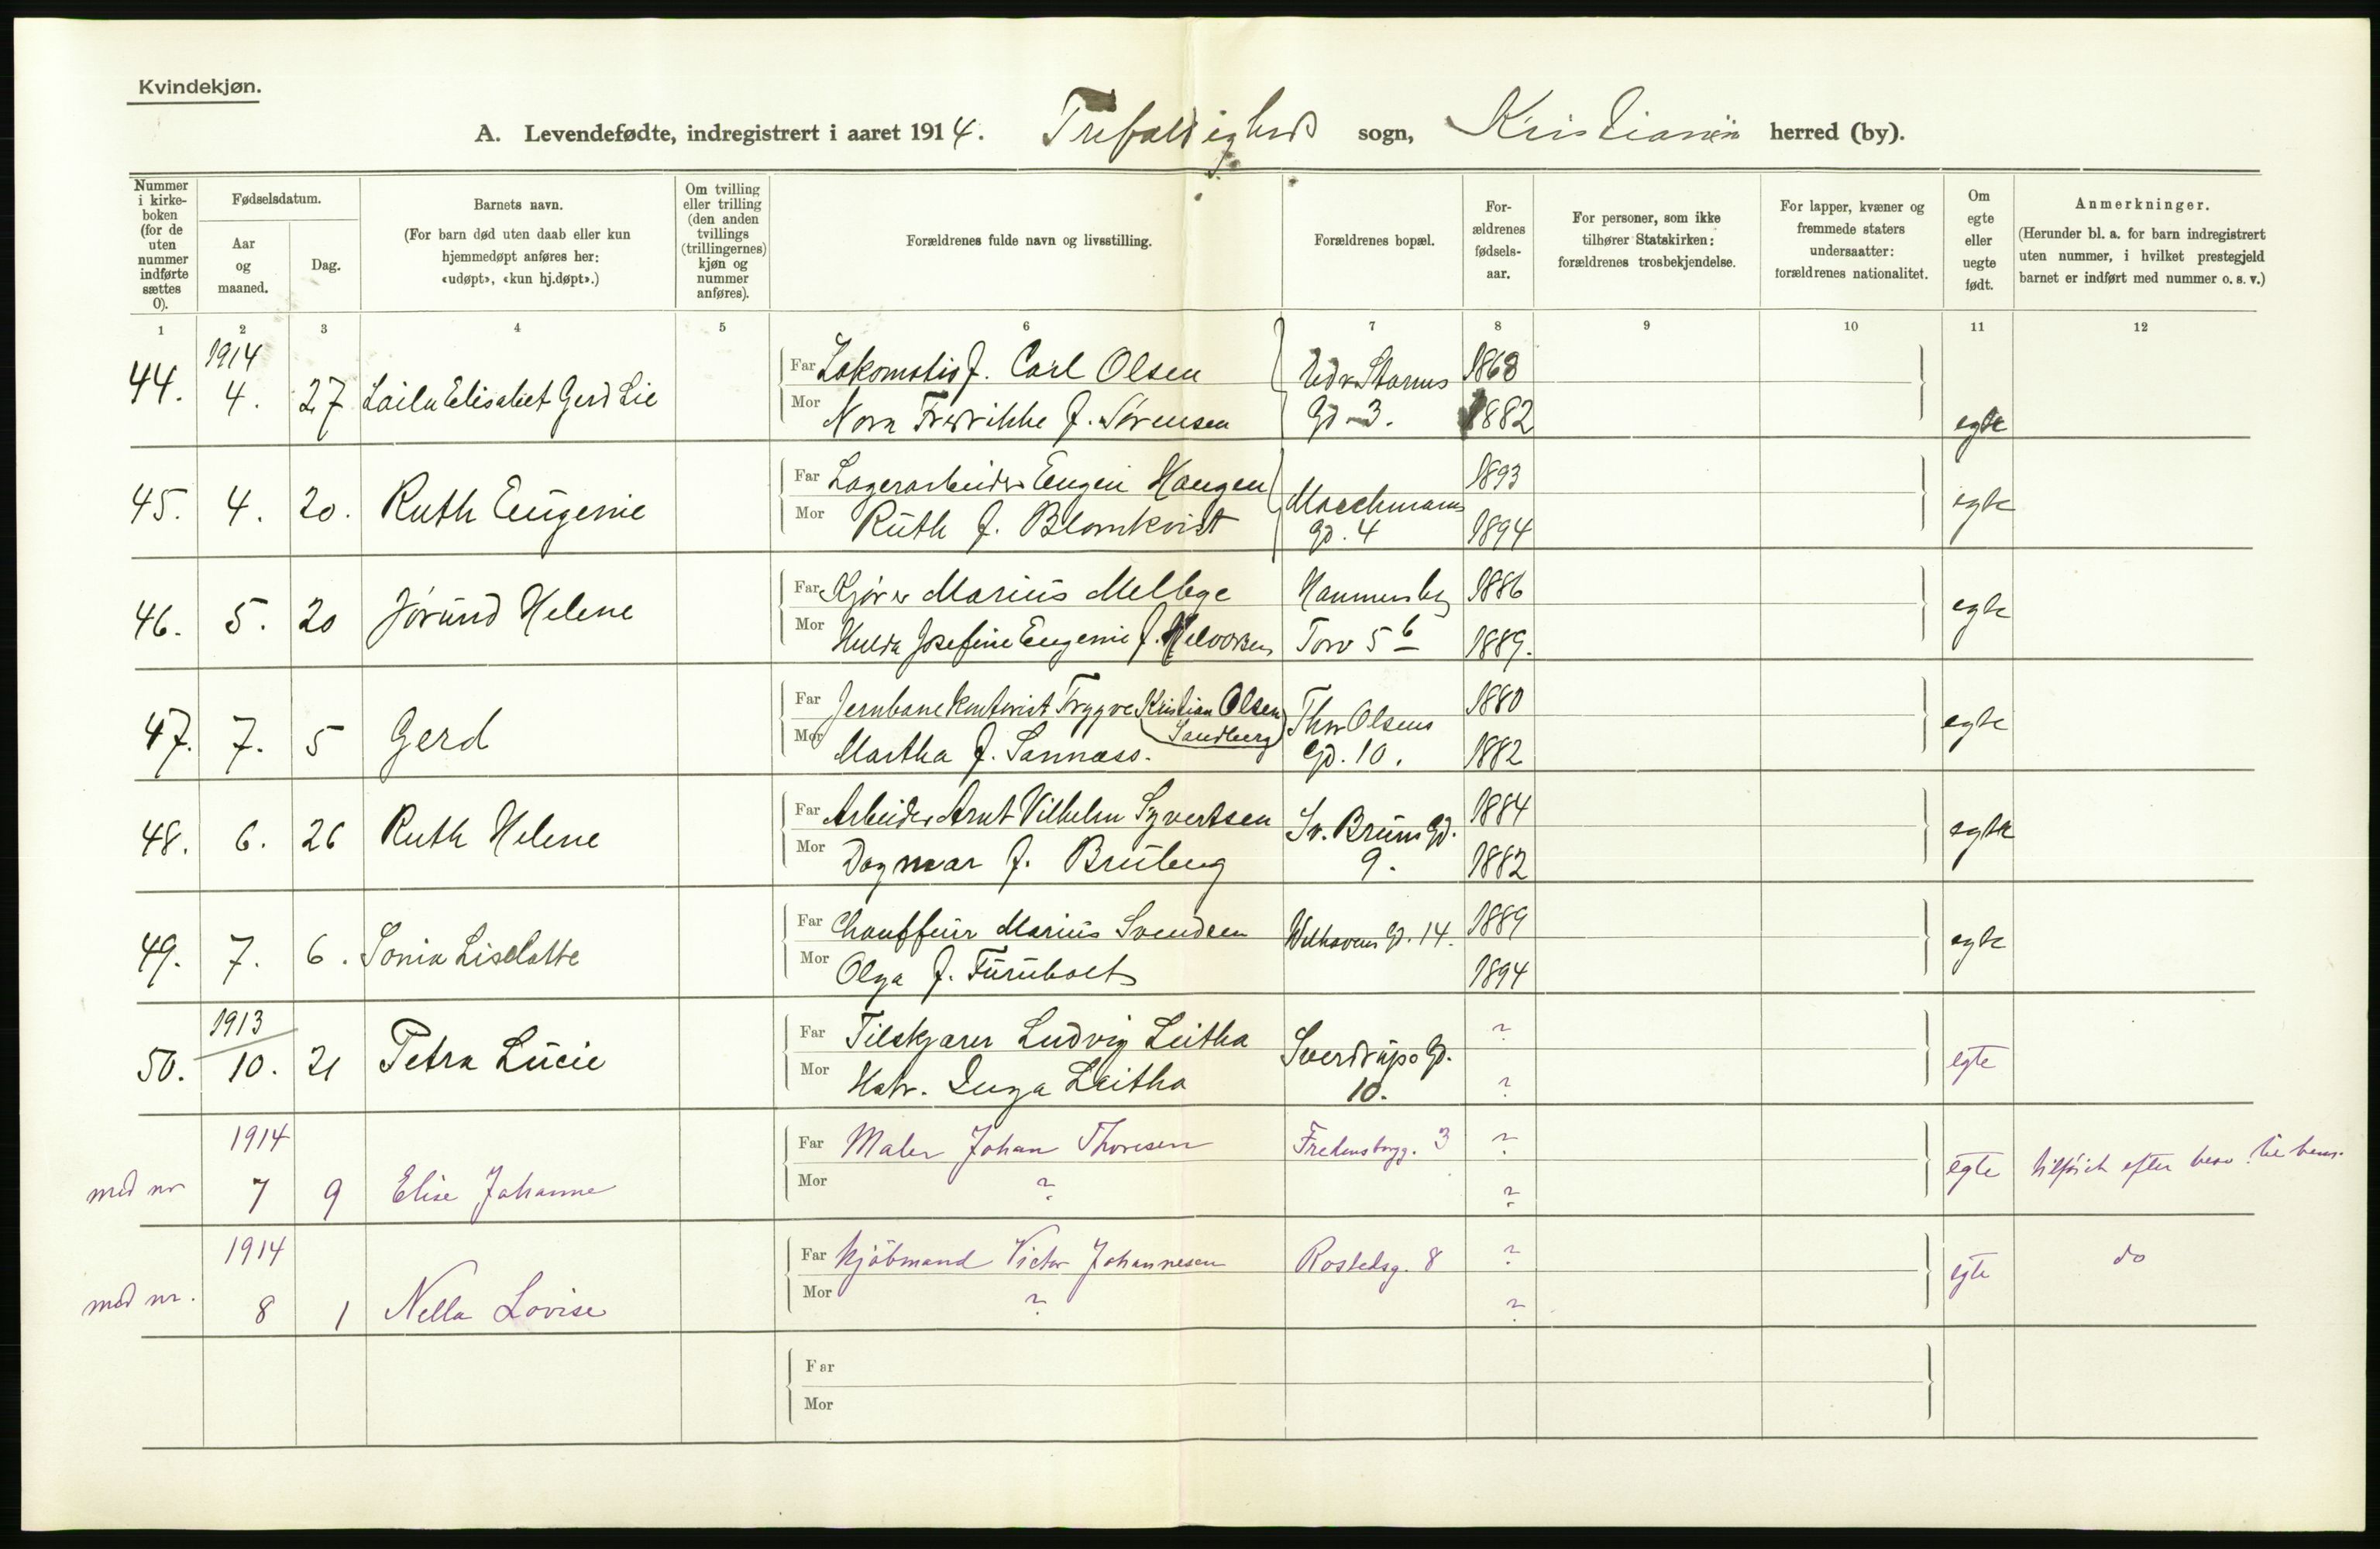 Kvindekjøn.
A. Levendefødte, indregistrert i aaret 1914. Trefoldigheds sogn, Kristiania herred (by).
Nummer i kirke- boken (for de uten nummer indførte sættes 0).
Fødselsdatum.
Aar og maaned.
Dag.
Barnets navn.
(For barn død uten daab eller kun hjemmedøpt anføres her: «udøpt», «kun hj.døpt».)
Om tvilling eller trilling (den anden tvillings (trillingernes) kjøn og nummer anføres).
Forældrenes fulde navn og livsstilling.
Forældrenes bopæl.
For- ældrenes fødsels- aar.
For personer, som ikke tilhører Statskirken: forældrenes trosbekjendelse.
For lapper, kvæner og fremmede staters undersaatter: forældrenes nationalitet.
Om egte eller uegte født.
Anmerkninger.
(Herunder bl. a. for barn indregistrert uten nummer, i hvilket prestegjeld barnet er indført med nummer o. s. v.)
1 2 3 4 5 6 7 8 9 10 11 12
1914
44. 4. 27 Laila Elisabet Gerd Lie
Far Lokomotivf. Carl Olsen Edv. Storms 1868
Mor Nora Fredrikke f. Sørensen Gd. 3. 1882 egte
45. 4. 20. Ruth Eugenie
Far Lagerarbeider Eugen Haugen 1893
Mor Ruth f. Blomkvist gd. 4 1894 egte
46. 5. 20 Jørund Helene
Far Kjører Marius Melbye Hammersbg 1886
Mor Hulda Josefine Eugenie f. Halvorsen Torv 5 b 1889. egte
47. 7. 5 Gerd
Far Jernbanekontorist Trygve Kristian Olsen Thv Olsens 1880
(Sandberg)
Mor Martha f. Sannæss. Gd. 10. 1882 egte
48. 6. 26 Ruth Helene
Far Arbeider Arnt Vilhelm Syvertsen Sv. Bruns Gd. 1884
Mor Dagmar f. Bruberg 9. 1882 egte
49. 7. 6. Sonia Liselotte
Far Chauffeur Marius Svendsen Welhavens Gd. 14. 1889
Mor Olga f. Furuholt 1894 egte
1913
50. 10. 21 Petra Lucie
Far Tilskjærer Ludvig Leitha Sverdrups Gd. ?
Mor Hstr. Inga Leitha 10. ? egte
1914
med nr 7 9 Elise Johanne
Far Maler Johan Thoresen Fredensborgg. 3 ?
Mor ? ? egte tilføiet efter
1914
med nr. 8 1 Nella Lovise
Far Kjøbmand Victor Johannesen Rostedsg. 8 ?
Mor ? ? egte do
Far
Mor